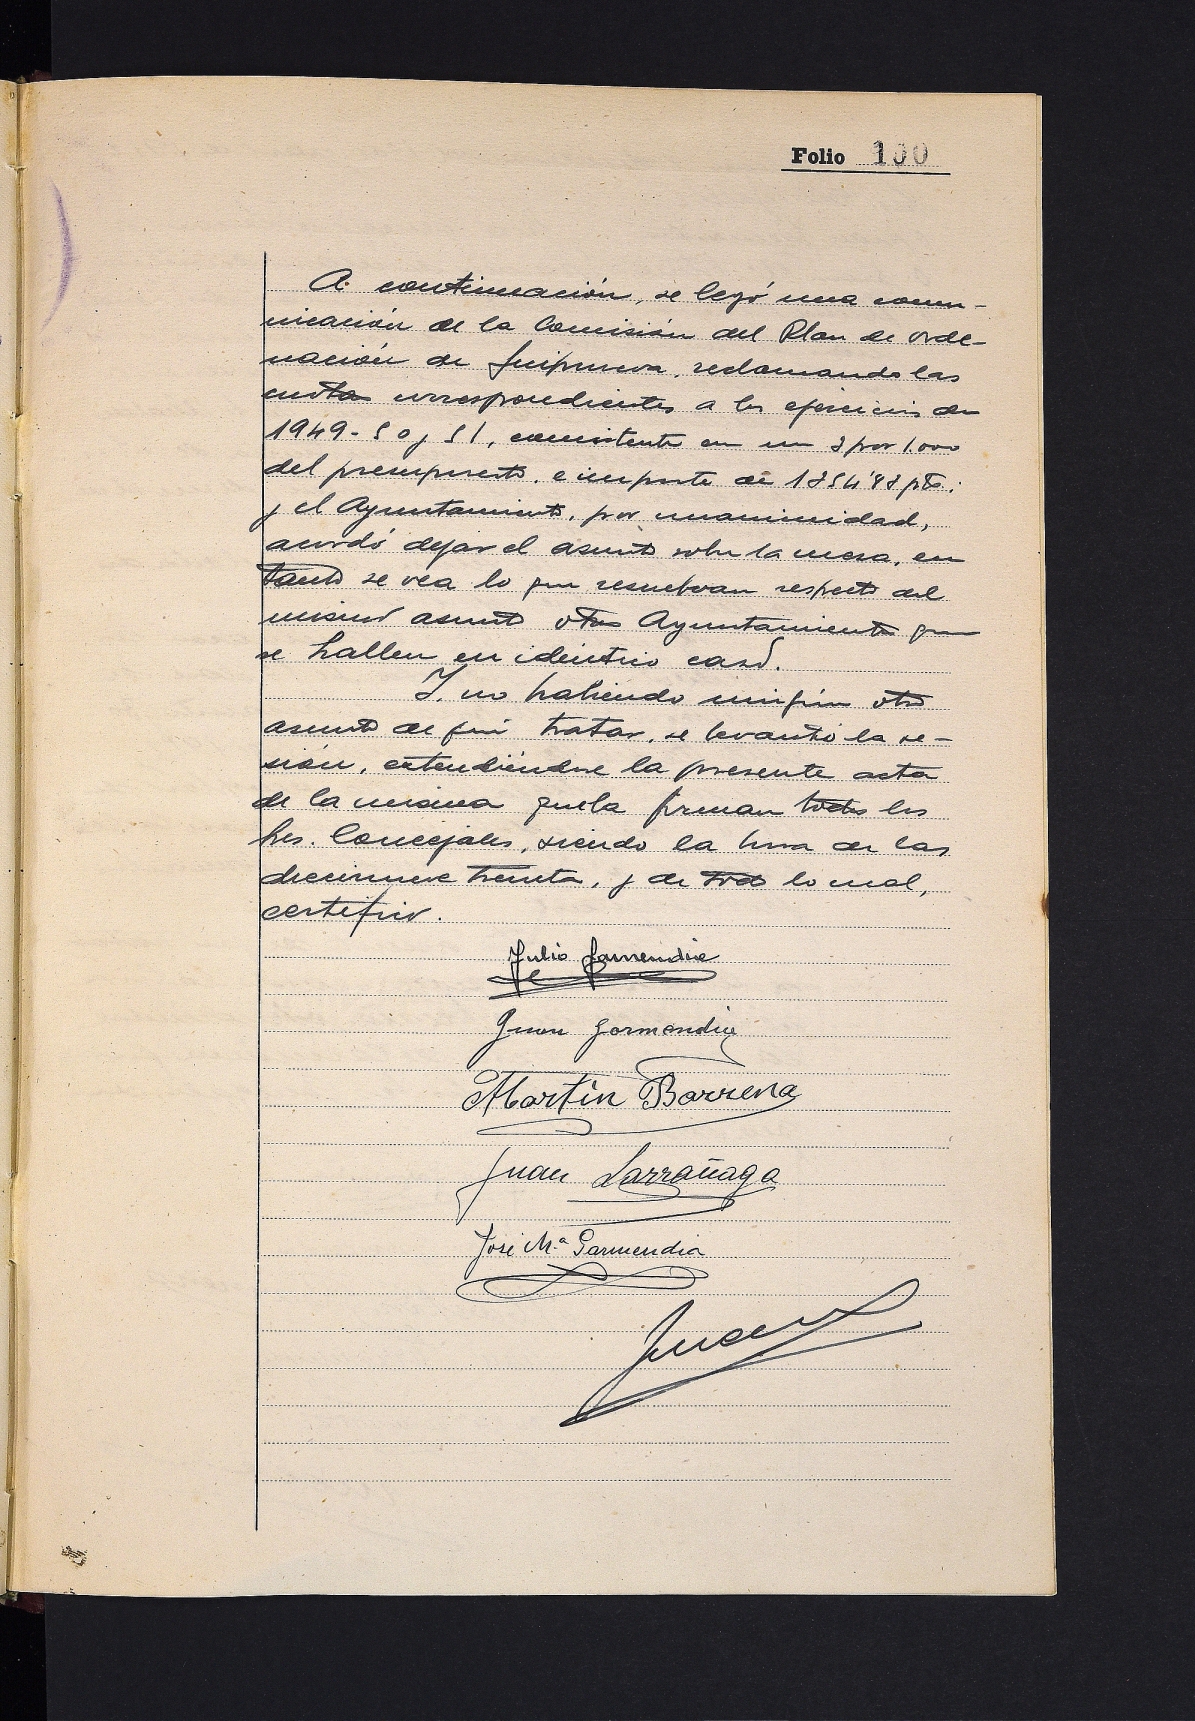 Folio 100
A continuación, se leyó una comu-
nicación de la Comisión del Plan de Orde-
nación de Guipuzcoa, reclamando las
cuotas correspondientes a los ejercicios de
1949-50 y 51, consistente en un 3 por 1.000
del presupuesto, e importe de pts.;
y el Ayuntamiento, por unanimidad,
acordó dejar el asunto sobre la mesa, en
tanto se vea lo que resuelvan respecto del
mismo asunto otros Ayuntamientos que
se hallen en identico caso.
Y no habiendo ningún otro
asunto de qué tratar, se levantó la se-
sión, extendiéndose la presente acta
de la misma que la firman todos los
Sres. Concejales, siendo la hora de las
diecinueve treinta, y de todo lo cual,
certifico.
Julio Garmendia
Juan Garmendia
Martín Barrena
Juan Larrañaga
José Mª Garmendia